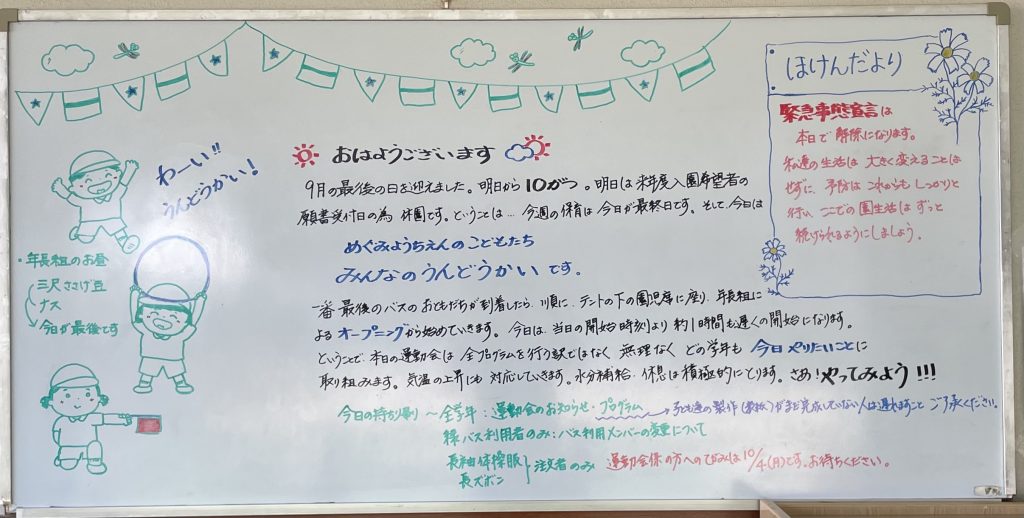 わーい!!
うんどうかい!
・年長組のお昼
三尺ささげ豆
ナス
今日が最後です
おはようございます
9月の最後の日を迎えました。明日から10がつ。明日は来年度入園希望者の
願書受付日の為 休園です。ということは… 今週の保育は今日が最終日です。そして、今日は
めぐみようちえんのこどもたち
みんなのうんどうかいです。
一番最後のバスのおともだちが到着したら、順に、テントの下の園児席に座り、年長組に
よるオープニングから始めていきます。今日は、当日の開始時刻より約1時間も遅くの開始になります。
ということで、本日の運動会は 全プログラムを行う訳ではなく 無理なく どの学年も 今日やりたいことに
取り組みます。気温の上昇にも対応していきます。水分補給・休息は積極的にとります。さあ!やってみよう!!!
今日の持ち帰り 〜 全学年:運動会のお知らせ・プログラム → 子ども達の製作(表紙)がまだ完成していない人は遅れますこと ご了承ください。
緑バス利用者のみ:バス利用メンバーの変更について
長袖体操服
長ズボン
注文者のみ
運動会係の方へのてがみは10/4(月)です。お待ちください。
ほけんだより
緊急事態宣言は
本日で解除になります。
私達の生活は 大きく変えることは
せずに 予防は これからも しっかりと
行い ここでの園生活は ずっと
続けられるようにしましょう。